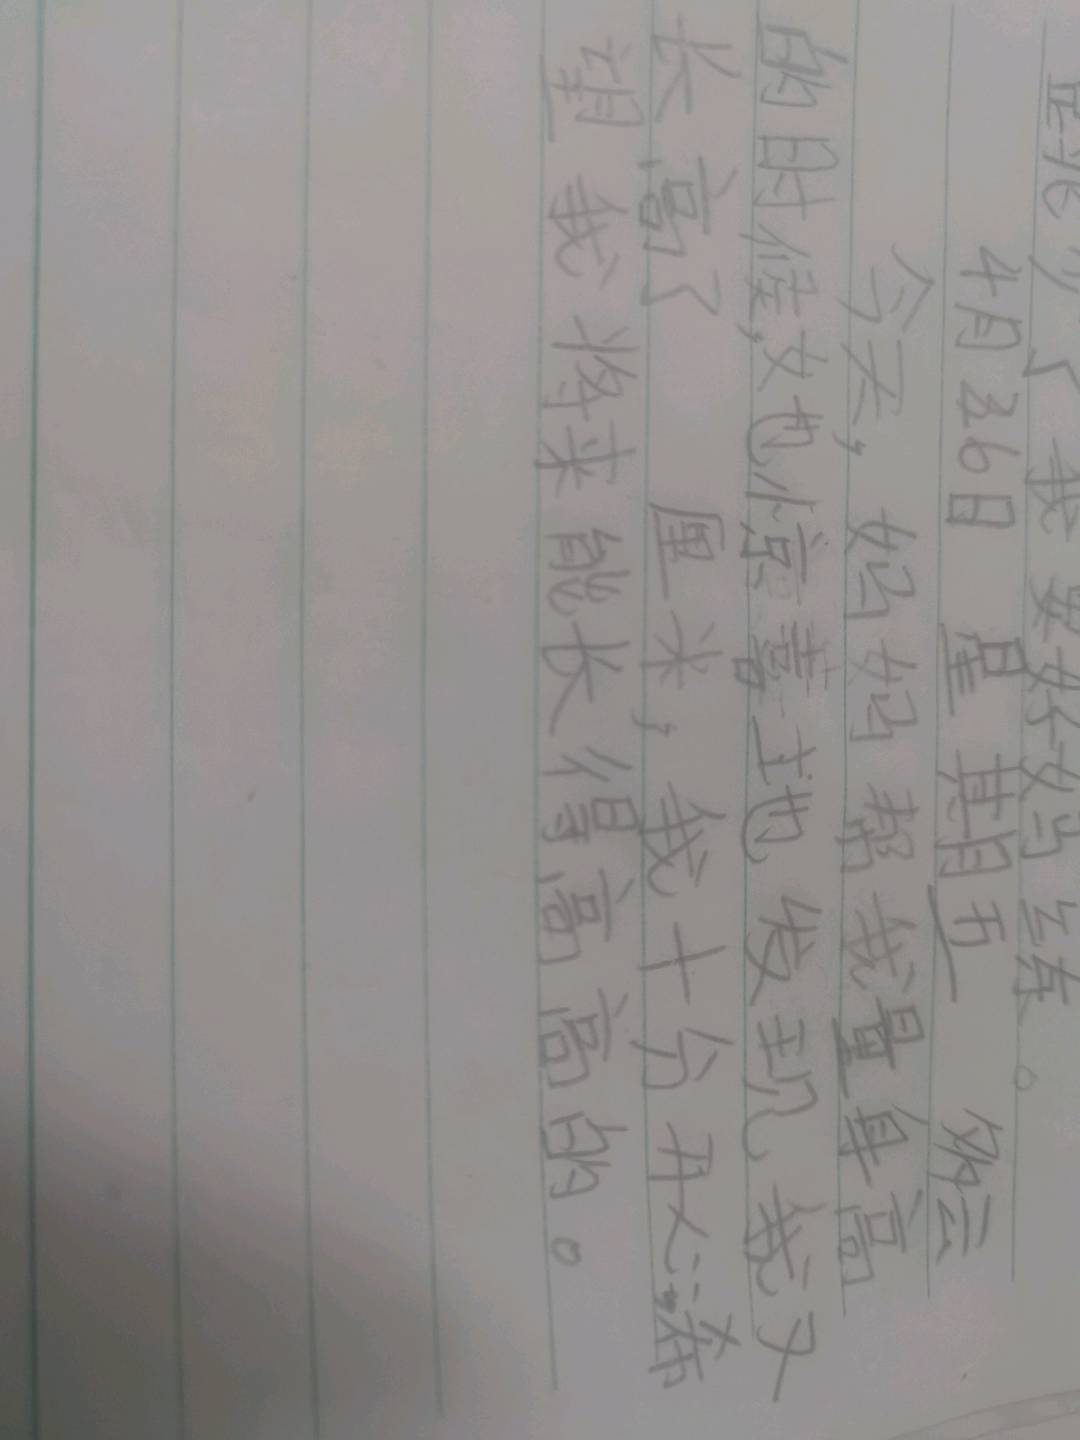 我要好好练。
4月26日 星期五 多云
今天,妈妈帮我量身高
的时候,她惊喜地发现我又
长高了 厘米,我十分开心,希
望我将来能长得高高的。